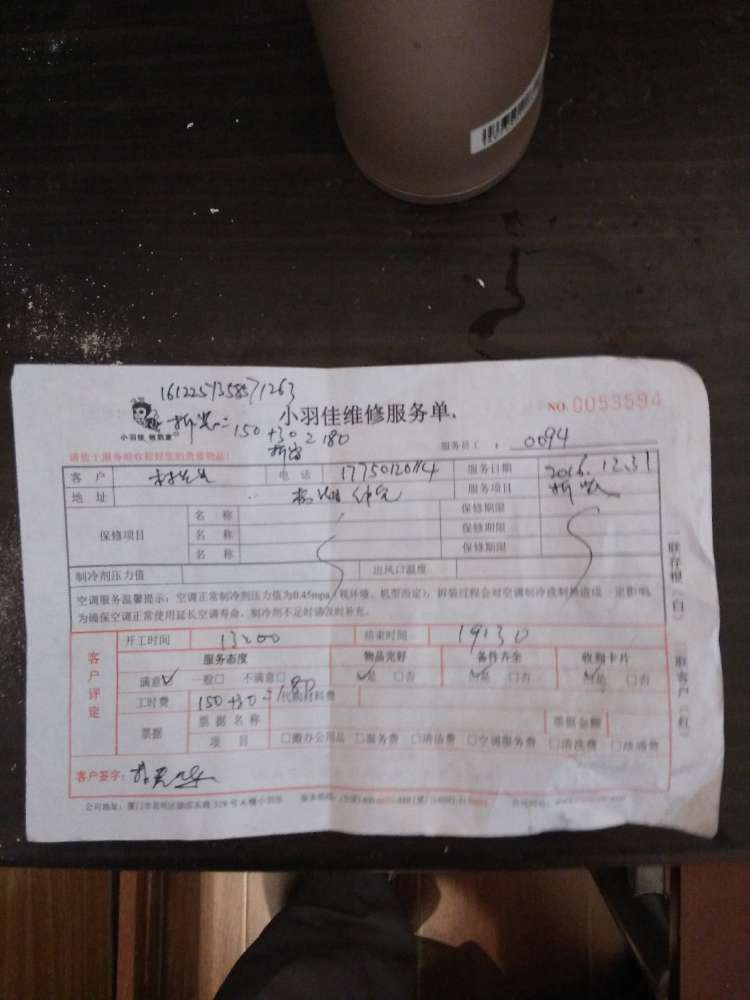 1612257358571263
小羽佳维修服务单
NO.0053594
小羽佳 他到家
拆装=150+30=180
服务员工: 0094
请您于服务前收拾好您的贵重物品!
客户 林先生 电话 17750120114 服务日期 2016.12.31
地址 服务项目 拆装
保修项目 名称 保修期限
名称 保修期限
名称 保修期限
制冷剂压力值 出风口温度
空调服务温馨提示:空调正常制冷剂压力值为0.45mpa(视环境、机型而定),拆装过程会对空调制冷或制热造成一定影响,
为确保空调正常使用延长空调寿命,制冷剂不足时请及时补充。
开工时间 13:00 结束时间 19:30
客户评定
服务态度 物品完好 备件齐全 收到卡片
满意☑ 一般□ 不满意□ ☑是 □否 ☑是 □否 ☑是 □否
工时费 150+30=180 代购材料费
票据 票据名称 票据金额
项目 □搬办公用品 □服务费 □清洁费 □空调服务费 □清洗费 □疏通费
客户签字:
公司地址:厦门市思明区 329号
联存根(白) 联客户(红)